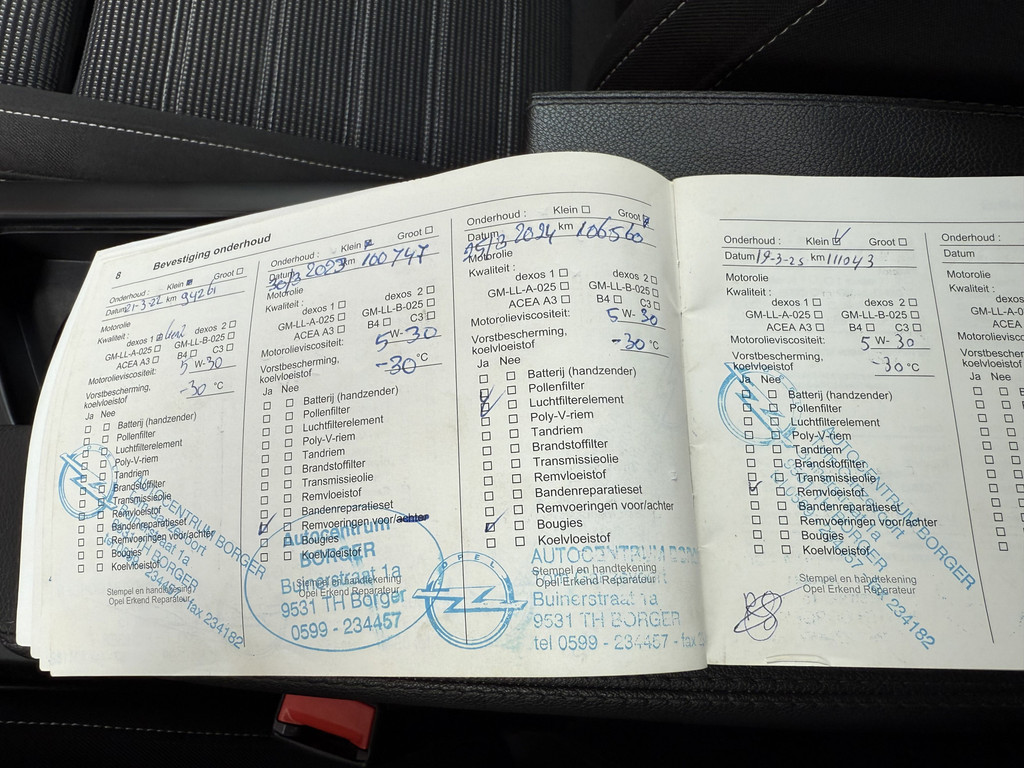 8 Bevestiging onderhoud
Onderhoud : Klein Groot
Datum 21-3-22 km 94261
Motorolie
Kwaliteit : dexos 1 dexos 2
GM-LL-A-025 GM-LL-B-025
ACEA A3 B4 C3
Motorolieviscositeit: 5 W-30
Vorstbescherming,
koelvloeistof -30 °C
Ja Nee
Batterij (handzender)
Pollenfilter
Luchtfilterelement
Poly-V-riem
Tandriem
Brandstoffilter
Transmissieolie
Remvloeistof
Bandenreparatieset
Remvoeringen voor/achter
Bougies
Koelvloeistof
Stempel en handtekening
Opel Erkend Reparateur
AUTOCENTRUM BORGER
fax 234182
Onderhoud : Klein Groot
Datum 30/3 2023 km 100747
Motorolie
Kwaliteit :
dexos 1 dexos 2
GM-LL-A-025 GM-LL-B-025
ACEA A3 B4 C3
Motorolieviscositeit: 5 W-30
Vorstbescherming,
koelvloeistof -30 °C
Ja Nee
Batterij (handzender)
Pollenfilter
Luchtfilterelement
Poly-V-riem
Tandriem
Brandstoffilter
Transmissieolie
Remvloeistof
Bandenreparatieset
Remvoeringen voor/achter
Bougies
Koelvloeistof
Stempel en handtekening
Opel Erkend Reparateur
Autocentrum
BORGER
Buinerstraat 1a
9531 TH Borger
0599 - 234457
Onderhoud : Klein Groot
Datum 25/3 2024 km 106560
Motorolie
Kwaliteit :
dexos 1 dexos 2
GM-LL-A-025 GM-LL-B-025
ACEA A3 B4 C3
Motorolieviscositeit: 5 W-30
Vorstbescherming,
koelvloeistof -30 °C
Ja Nee
Batterij (handzender)
Pollenfilter
Luchtfilterelement
Poly-V-riem
Tandriem
Brandstoffilter
Transmissieolie
Remvloeistof
Bandenreparatieset
Bougies
Koelvloeistof
Stempel en handtekening
Opel Erkend Reparateur
OPEL
AUTOCENTRUM BORG
Buinerstraat 1a
9531 TH BORGER
tel 0599 - 234457 - fax 2
Onderhoud : Klein Groot
Datum 19-3-25 km 111043
Motorolie
Kwaliteit :
dexos 1 dexos 2
GM-LL-A-025 GM-LL-B-025
ACEA A3 B4 C3
Motorolieviscositeit: 5 W-30
Vorstbescherming,
koelvloeistof -30 °C
Ja Nee
Batterij (handzender)
Pollenfilter
Luchtfilterelement
Poly-V-riem
Tandriem
Brandstoffilter
Transmissieolie
Remvloeistof
Bandenreparatieset
Remvoeringen voor/achter
Bougies
Koelvloeistof
Stempel en handtekening
Opel Erkend Reparateur
AUTOCENTRUM BORGER
fax 234182
Onderhoud :
Datum
Motorolie
Kwaliteit :
de
GM-LL-A
ACEA
Motorolievisc
Vorstbescher
koelvloeistof
Ja Nee